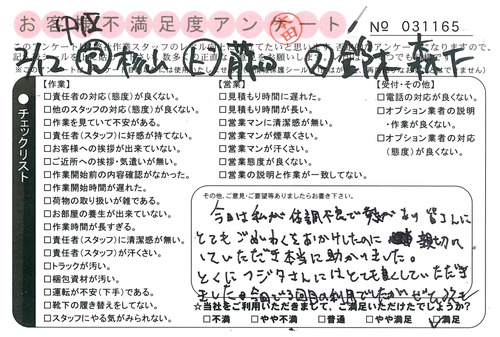 お客様不満足度アンケート
No 031165
【作業】
□責任者の対応(態度)が良くない。
□他のスタッフの対応(態度)が良くない。
□作業を見ていて不安がある。
□責任者(スタッフ)に好感が持てない。
□お客様への挨拶が出来ていない。
□ご近所への挨拶・気遣いが無い。
□作業開始前の内容確認がなかった。
□作業開始時間が遅れた。
□荷物の取り扱いが雑である。
□お部屋の養生が出来ていない。
□作業時間が長すぎる。
□責任者(スタッフ)に清潔感が無い。
□責任者(スタッフ)が汗くさい。
□トラックが汚い。
□梱包資材が汚い。
□運転が不安(下手)である。
□靴下の履き替えをしてない。
□スタッフにやる気がみられない。
【営業】
□見積もり時間に遅れた。
□見積もり時間が長い。
□営業マンに清潔感が無い。
□営業マンが煙草くさい。
□営業マンが汗くさい。
□営業態度が良くない。
□営業の説明と作業が一致してない。
【受付・その他】
□電話の対応が良くない。
□オプション業者の説明
・作業が良くない。
□オプション業者の対応
(態度)が良くない。
●チェックリスト
その他、ご意見・ご要望等ありましたらお書き下さい。
今日は私が体調不良で
とてもごめいわくをおかけしたのに 親切に
していただき本当に助かりました。
とくにフジタさんにはとても良くしていただき
ました。今回で3回目の利用でしたが
☆当社をご利用いただきまして、ご満足いただけたでしょうか?
□不満 □やや不満 □普通 □やや満足 □満足